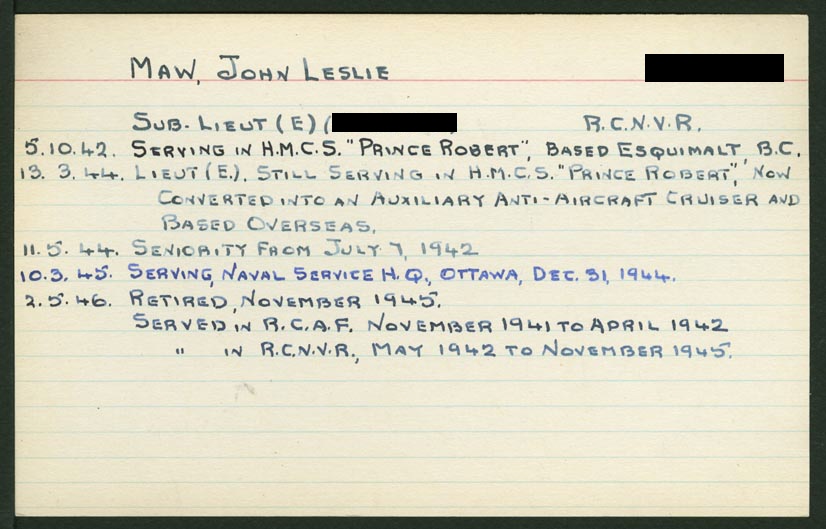 MAW, JOHN LESLIE
SUB-LIEUT (E) ( R.C.N.V.R.
5.10.42. SERVING IN H.M.C.S. "PRINCE ROBERT", BASED ESQUIMALT, B.C.
13. 3. 44. LIEUT (E). STILL SERVING IN H.M.C.S. "PRINCE ROBERT", NOW
CONVERTED INTO AN AUXILIARY ANTI-AIRCRAFT CRUISER AND
BASED OVERSEAS.
11. 5. 44. SENIORITY FROM JULY 7, 1942
10.3. 45. SERVING, NAVAL SERVICE H.Q., OTTAWA, DEC. 31, 1944.
2.5.46. RETIRED, NOVEMBER 1945.
SERVED IN R.C.A.F. NOVEMBER 1941 TO APRIL 1942
" IN R.C.N.V.R., MAY 1942 TO NOVEMBER 1945.